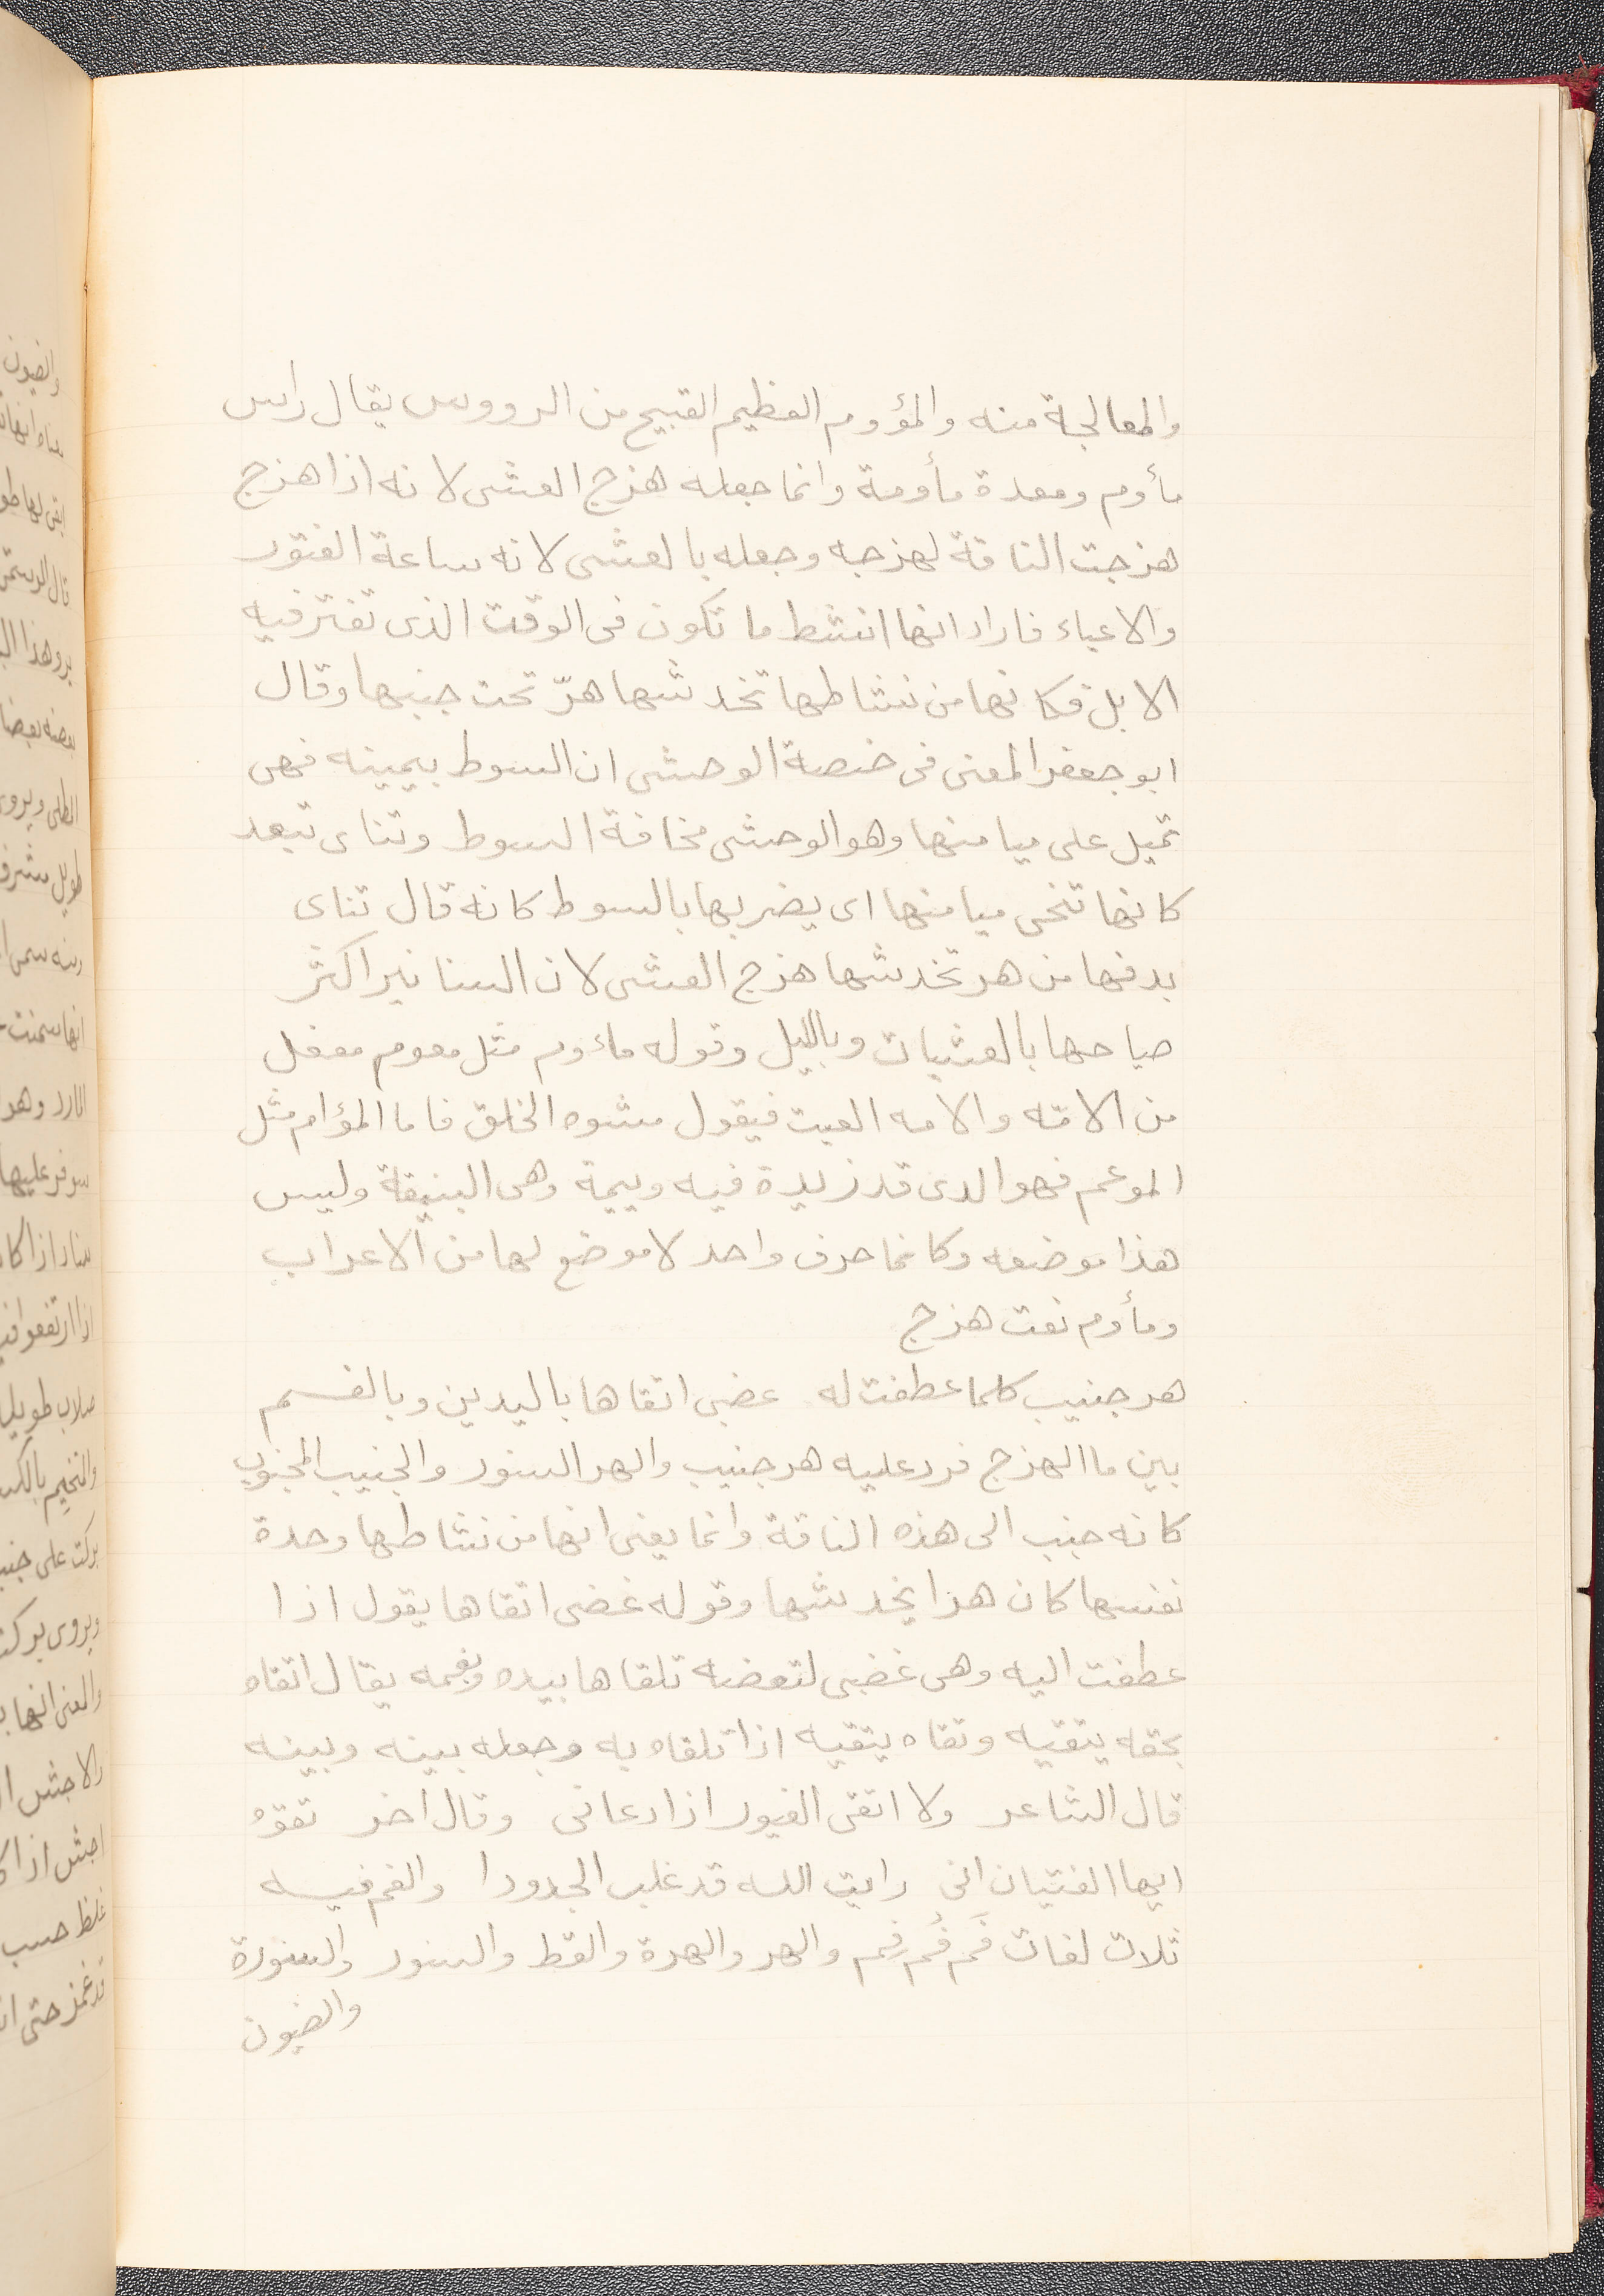 والمعالجة منه والمؤوم العظيم القبيح من الرووس يقال راس
مأوم ومعدة مأومة وانما جعله هزج العشى لانه اذا هزج
هزجت الناقة لهزجه وجعله بالعشى لانه ساعة الفتور
والاعياء فاراد انها انشط ما تكون فى الوقت الذى تفتر فيه
الابل فكانها من نشاطها تخدشها هرّ تحت جنبها وقال
ابو جعفر المعنى فى خصة الوحشى ان السوط بيمينه فهى
تميل على ميامنها وهو الوحشى مخافة السوط وتناى تبعد
كانها تنحى ميامنها اى يضربها بالسوط كانه قال تناى
بدفها من هر تخدشها هزج العشى لان السنانير اكثر
صياحها بالعشيات وبالليل وقوله ماءوم مثل معوم مفعل
من الامّه والامه العيت فيقول مشوه الخلق فاما المؤام مثل
الموعم فهو الدى قد زيدة فيه وييمة وهى البنيقة وليس
هذا موضعه وكانما حرف واحد لا موضع لها من الاعراب
ومأوم نعت هزج
هر جنيب كلما عطفت له عضبى اتقاها باليدين وبالفم
بين ما الهزج فرد عليه هر جنيب والهر السنور والجنيب المجنوب
كانه جنب الى هذه الناقة وانما يعنى انها من نشاطها وحدة
نفسها كان هرا يخدشها وقوله غضبى اتقاها يقول اذا
عطفت اليه وهى غضبى لتعضه تلقاها بيده وبفمه يقال اتقاه
بحقه يتقيه وتقاه يتقيه اذا تلقاه به وجعله بينه وبينه
قال الشاعر ولا اتقى الغيور اذا دعانى وقال اخر تقوه
ايها الفتيان انى رايت الله قد غلب الجدودا والفم فيه
ثلاث لغات فَم فُم فِم والهر والهرة والقط والسنور والسنورة
والضيون